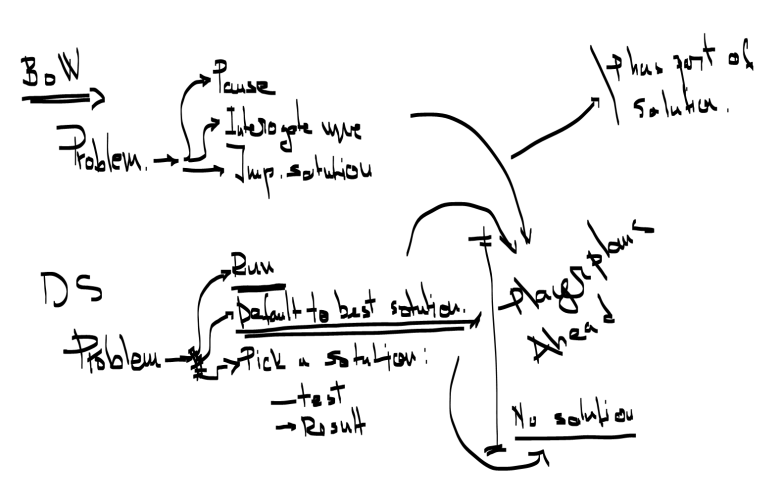 BoW
Problem.
Pause
Interogate
Imp. solution
P has part of
solution.
DS
Problem
Run
Default to best solution.
Pick a solution:
test
Result
Player plans
Ahead
No solution